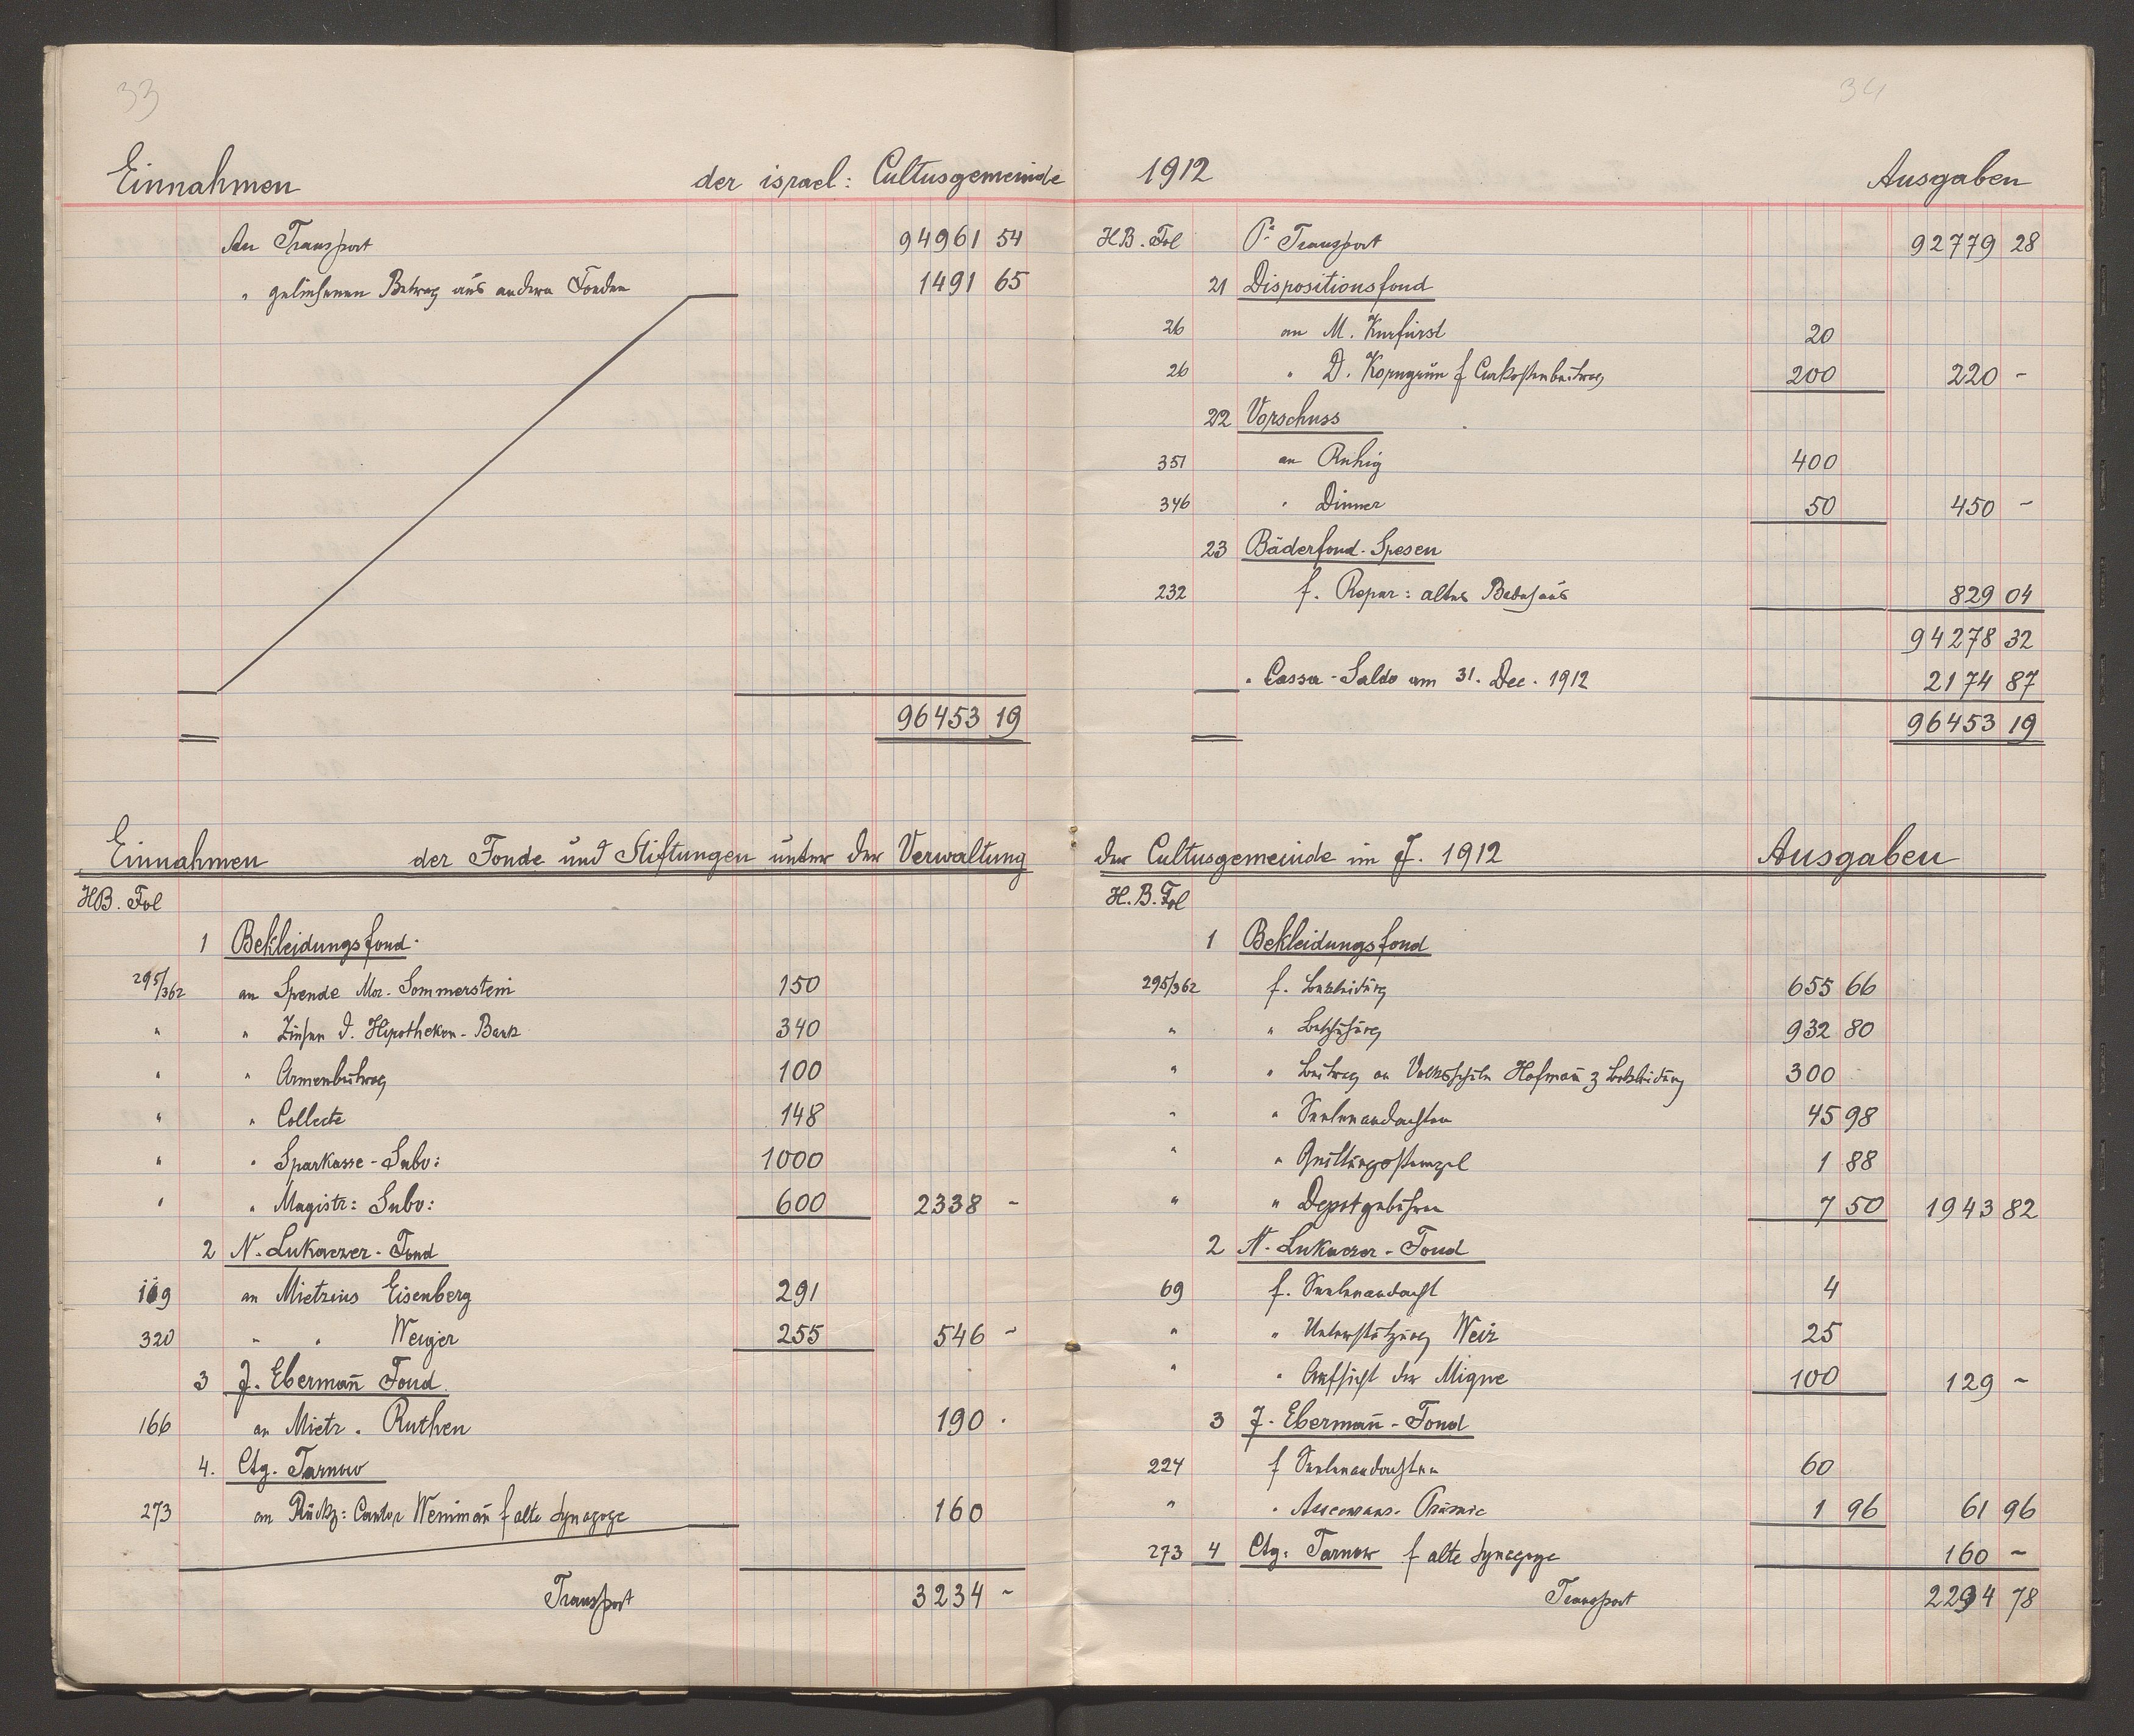 33
Einnahmen der israel: Cultusgemeinde
An Transport 94961 54
" geliehenen Betrag aus andern Fonden 1491 65
96453 19
Einnahmen der Fonde und Stiftungen unter der Verwaltung
HB. Fol
1 Bekleidungsfond.
295/362 an Spende Mor. Sommerstein 150
" " Zinsen d. Hipotheken-Bank 340
" " Armenbeitrag 100
" " Collecte 148
" " Sparkasse-Subv: 1000
" " Magistr: Subv: 600 2338 -
2 N. Lukaczer-Fond
169 an Mietzins Eisenberg 291
320 " " Wenzer 255 546 -
3 J. Ebermañ Fond
166 an Mietz. Ruthen 190 .
4. Ctg. Tarnow
273 an Rückz: Cantor Weinmañ f alte Synagoge 160
Transport 3234 -
34
1912 Ausgaben
HB. Fol Pr Transport 92779 28
21 Dispositionsfond
26 an M. Kurfürst 20
26 " D. Korngrün f Curkostenbeitrag 200 220 -
22 Vorschuss
351 an Ruhig 400
346 " Dinner 50 450 -
23 Bäderfond-Spesen
232 f. Repar: altes Badehaus 829 04
94278 32
" Cassa-Saldo am 31. Dec. 1912 2174 87
96453 19
der Cultusgemeinde im J. 1912 Ausgaben
H.B. Fol
1 Bekleidungsfond
295/362 f. Bekleidung 655 66
" " Beschuhung 932 80
" " Beitrag an Volksschule Hofmañ z Bekleidung 300
" " Seelenandachten 45 98
" " Quittungsstempel 1 88
" " Depotgebühren 7 50 1943 82
2 N. Lukaczer-Fond
69 f. Seelenandacht 4
" " Unterstützung Weiz 25
" " Aufsicht der Miqwe 100 129 -
3 J. Ebermañ-Fond
224 f Seelenandachten 60
" " Assecurans-Prämie 1 96 61 96
273 4 Ctg: Tarnow f alte Synagoge 160 -
Transport 2294 78